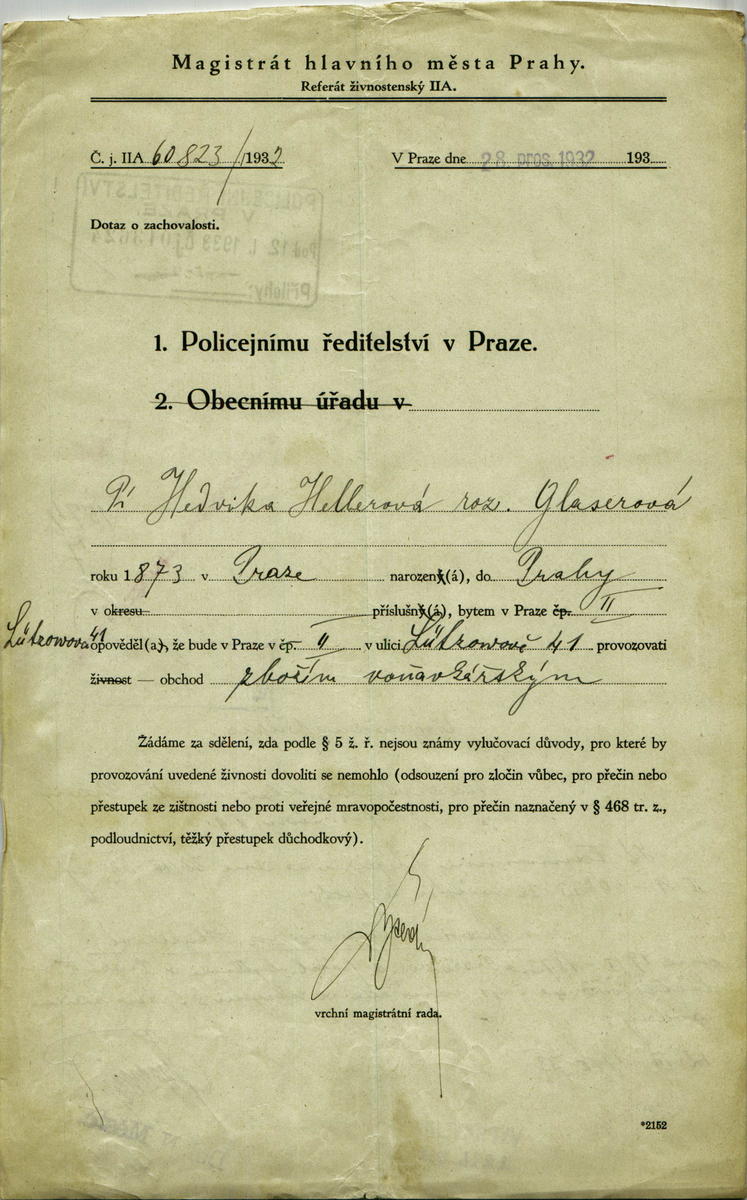 Magistrát hlavního města Prahy.
Referát živnostenský IIA.
Č. j. IIA 60823/1932
V Praze dne 28. pros. 1932 193
Dotaz o zachovalosti.
1. Policejnímu ředitelství v Praze.
2. Obecnímu úřadu v
Pí Hedvika Hellerová roz. Glaserová
roku 1873 v Praze narozený(á), do Prahy
v okresu příslušný(á), bytem v Praze čp. II
Lützowova 41
opověděl(a), že bude v Praze v čp. II v ulici Lützowově 41 provozovati
živnost — obchod zbožím voňavkářským
Žádáme za sdělení, zda podle § 5 ž. ř. nejsou známy vylučovací důvody, pro které by
provozování uvedené živnosti dovoliti se nemohlo (odsouzení pro zločin vůbec, pro přečin nebo
přestupek ze zištnosti nebo proti veřejné mravopočestnosti, pro přečin naznačený v § 468 tr. z.,
podloudnictví, těžký přestupek důchodkový).
vrchní magistrátní rada.
*2152